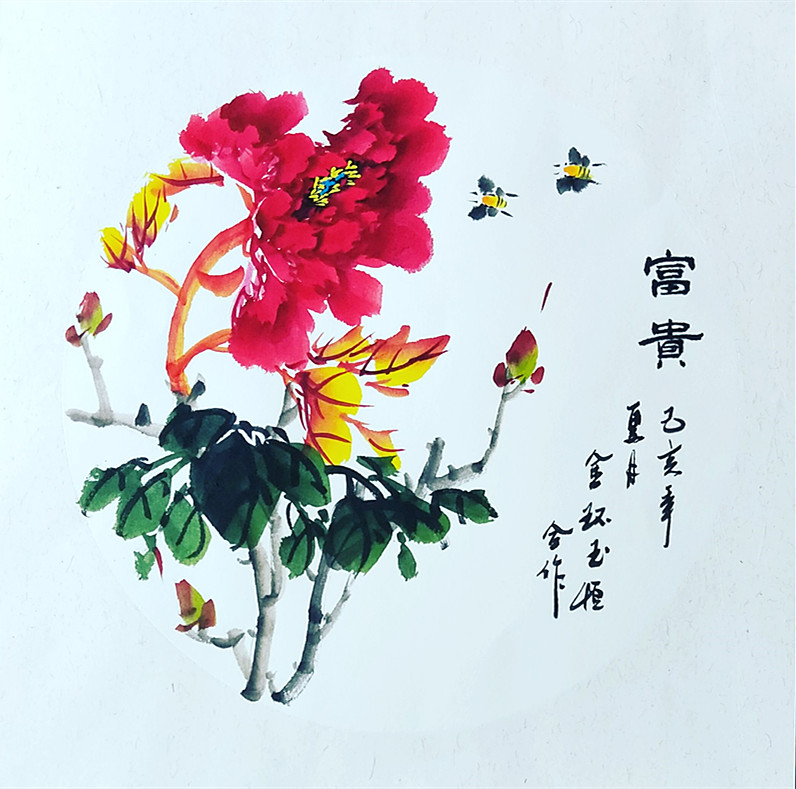 富貴
己亥年
夏月
金玉恒
合作